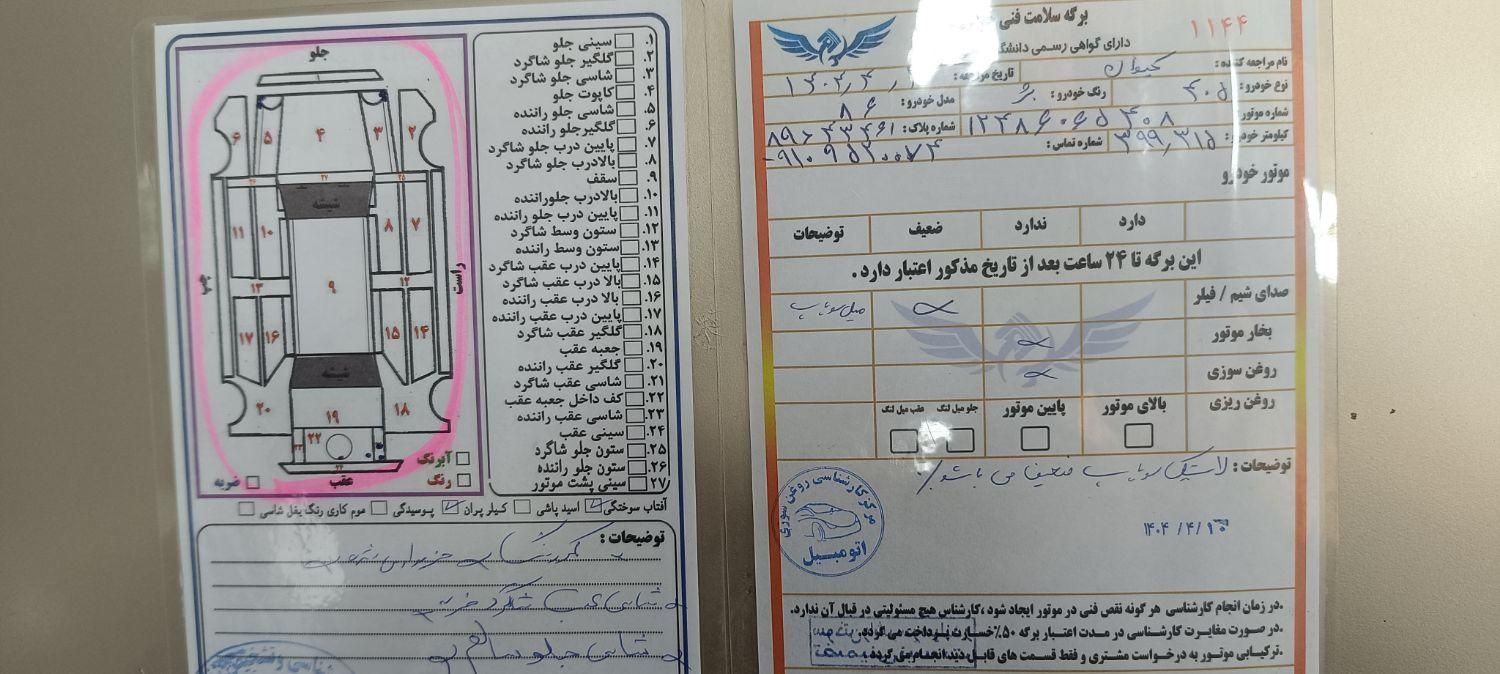 برگه سلامت فنی
۱۱۴۴
دارای گواهی رسمی دانشگ
نام مراجعه کننده :
تاریخ مراجعه :
نوع خودرو : ۴۰۵
رنگ خودرو :
مدل خودرو : ۸۶
شماره موتور : ۱۲۴۸۶۰۶۵۳۰۸
شماره پلاک :
کیلومتر خودرو : ۳۹۹,۳۱۵
شماره تماس :
موتور خودرو
دارد
ندارد
ضعیف
توضیحات
این برگه تا ۲۴ ساعت بعد از تاریخ مذکور اعتبار دارد .
صدای شیم / فیلر
بخار موتور
روغن سوزی
روغن ریزی
بالای موتور
پایین موتور
جلو میل لنگ
عقب میل لنگ
توضیحات : لاستیک سوپاپ ضعیف می باشد
مرکز کارشناسی روغن سوزی
اتومبیل
۱۴۰۴/۴/۱۰
.در زمان انجام کارشناسی هر گونه نقص فنی در موتور ایجاد شود ،کارشناس هیچ مسئولیتی در قبال آن ندارد.
.در صورت مغایرت کارشناسی در مدت اعتبار برگه ۵۰٪خسارت پرداخت می گردد.
.ترکیابی موتور به درخواست مشتری و فقط قسمت های قابل دید انجام می گردد.
جلو
راست
چپ
عقب
شیشه
شیشه
۱
۲
۳
۴
۵
۶
۷
۸
۹
۱۰
۱۱
۱۲
۱۳
۱۴
۱۵
۱۶
۱۷
۱۸
۱۹
۲۰
۲۲
۲۵
۲۷
آبرنگ
رنگ
ضربه
۱. سینی جلو
۲. گلگیر جلو شاگرد
۳. شاسی جلو شاگرد
۴. کاپوت جلو
۵. شاسی جلو راننده
۶. گلگیرجلو راننده
۷. پایین درب جلو شاگرد
۸. بالادرب جلو شاگرد
۹. سقف
۱۰. بالادرب جلوراننده
۱۱. پایین درب جلو راننده
۱۲. ستون وسط شاگرد
۱۳. ستون وسط راننده
۱۴. پایین درب عقب شاگرد
۱۵. بالا درب عقب شاگرد
۱۶. بالا درب عقب راننده
۱۷. پایین درب عقب راننده
۱۸. گلگیر عقب شاگرد
۱۹. جعبه عقب
۲۰. گلگیر عقب راننده
۲۱. شاسی عقب شاگرد
۲۲. کف داخل جعبه عقب
۲۳. شاسی عقب راننده
۲۴. سینی عقب
۲۵. ستون جلو شاگرد
۲۶. ستون جلو راننده
۲۷. سینی پشت موتور
آفتاب سوختگی
اسید پاشی
کیلر پران
پوسیدگی
موم کاری رنگ بغل شاسی
توضیحات :
شاسی عقب شاگرد ضربه
شاسی جلو سالم